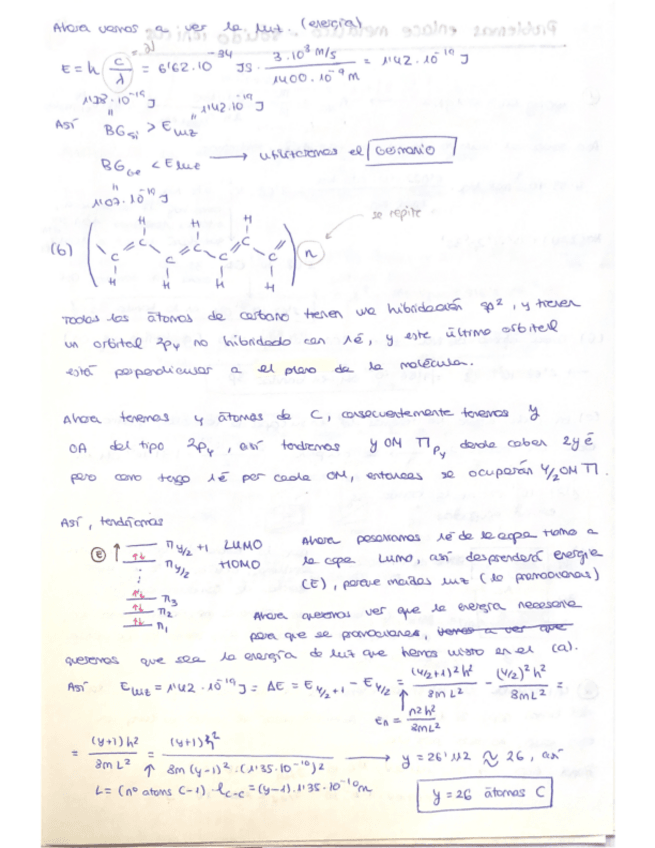 Ahora vamos a ver la luz. (energía)
E = h c/λ = 6'62.10^-34 JS . 3.10^8 m/s / 1400.10^-9 m = 1'42.10^-19 J
= ν
1'42.10^-19 J
Así BG_Si > E_luz
BG_Ge < E_luz → utilizamos el Germanio
1'07.10^-19 J
se repite
(b)
H H H
C C C C C C
H H H H
n
Todos los átomos de carbono tienen una hibridación sp², y tienen
un orbital 2p_y no hibridado con 1é, y este último orbital
está perpendicular a el plano de la molécula.
Ahora tenemos y átomos de C, consecuentemente tenemos y
OA del tipo 2p_y, así tendremos y OM Π_py donde caben 2y é
pero como tengo 1é por cada OM, entonces se ocuparán y/2 OM Π.
Así, tendríamos
E ↑ Π y/2 +1 LUMO
Π y/2 HOMO
Π3
Π2
Π1
Ahora pasaríamos 1é de la capa Homo a
la capa Lumo, así desprenderá energía
(E), porque (lo promocionas)
Ahora queremos ver que la energía necesaria
para que se promocionase, vamos a ver que
queremos que sea la energía de luz que hemos visto en el (a).
Así E_luz = 1'42.10^-19 J = ΔE = E_y/2+1 - E_y/2 = (y/2+1)² h² / 8mL² - (y/2)² h² / 8mL² =
e_n = n² h² / 8mL²
= (y+1) h² / 8mL² = (y+1) h² / 8m (y-1)² . (1'35.10^-10)² → y = 26'112 ≈ 26, así
L = (nº atoms C-1) . l_c-c = (y-1).1'35.10^-10 m
y = 26 átomos C